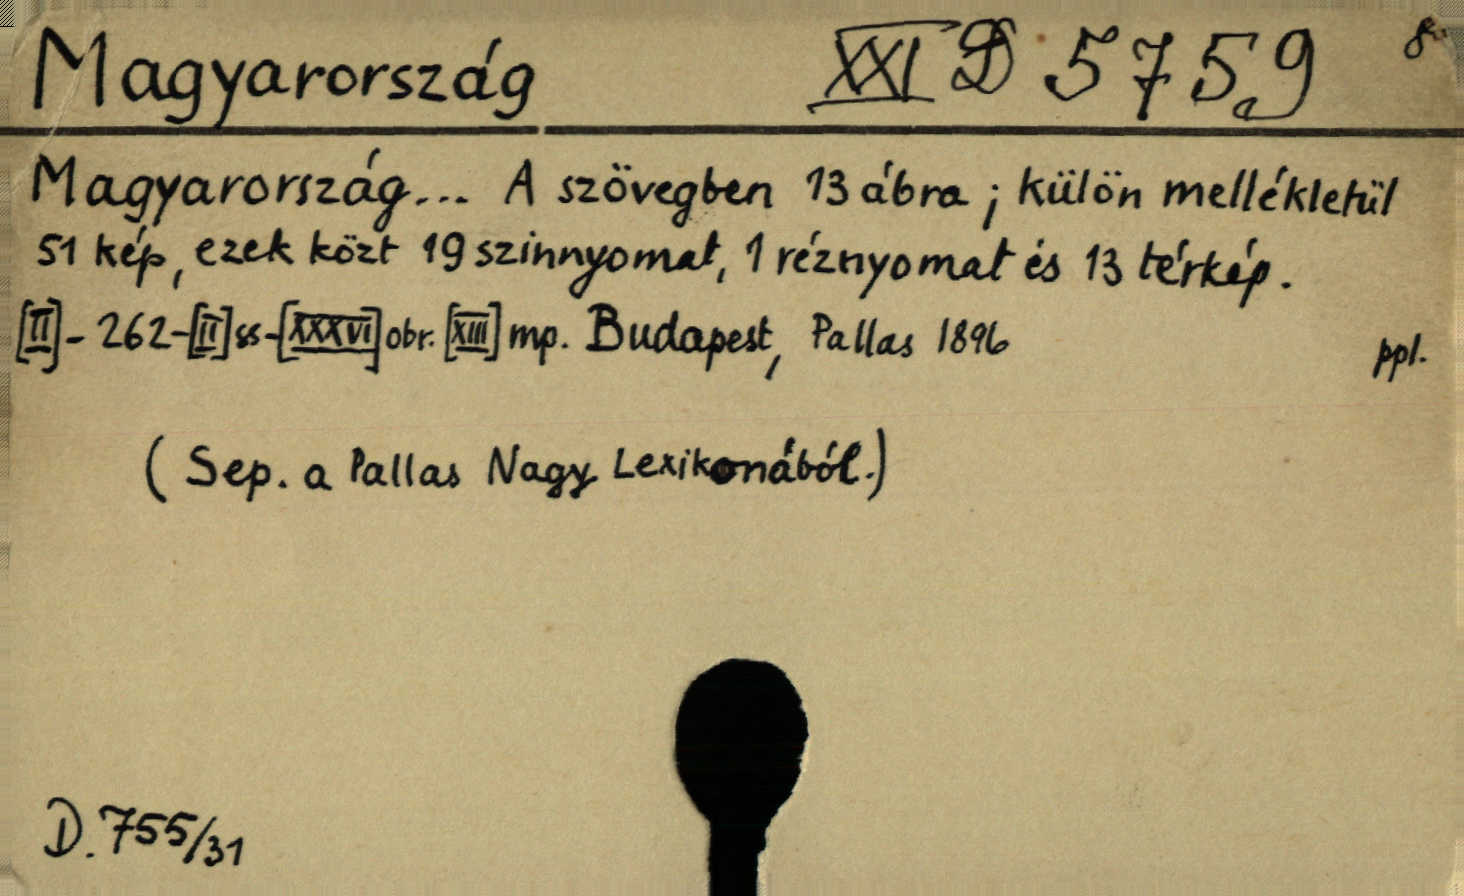 Magyarország XXI D 5759 8°
Magyarország... A szövegben 13 ábra ; külön mellékletül
51 kép, ezek közt 19 szinnyomat, 1 réznyomat és 13 térkép.
[II] - 262 - [II] ss - [XXXVI] obr. [XIII] mp. Budapest, Pallas 1896
ppl.
(Sep. a Pallas Nagy Lexikonából.)
D. 755/31